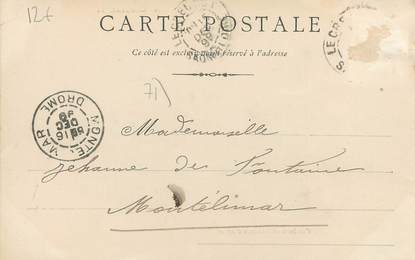 12€
CARTE POSTALE
Ce côté est exclusivement réservé à l'adresse
LE CRE
71)
MONTELIMAR
DROME
DEC
Mademoiselle
Jehanne de Fontaine
Montélimar